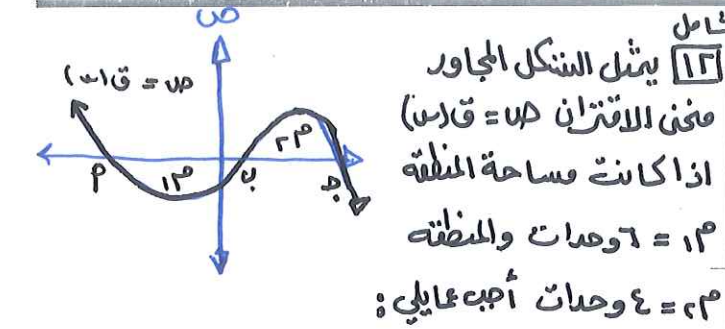 شامل
١٢ يمثل الشكل المجاور
منحنى الاقتران ص = ق(س)
اذا كانت مساحة المنطقة
م١ = ٦ وحدات والمنطقة
م٢ = ٤ وحدات أجب عمايلي :
ص
ص = ق(س)
م١
م٢
P
ب
جـ